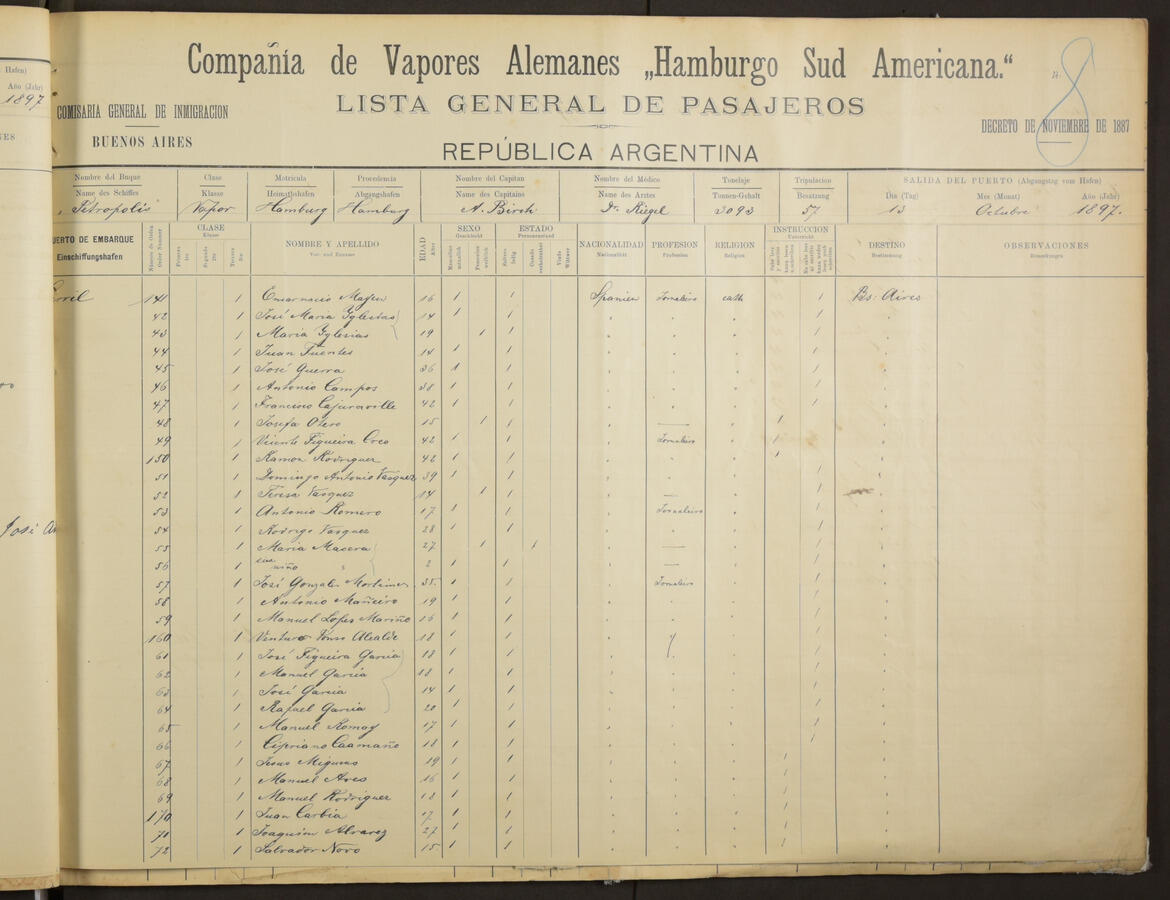 Compañía de Vapores Alemanes „Hamburgo Sud Americana.“
Nr. 8
LISTA GENERAL DE PASAJEROS
COMISARIA GENERAL DE INMIGRACION
BUENOS AIRES
DECRETO DE NOVIEMBRE DE 1887
REPÚBLICA ARGENTINA
Hafen)
Año (Jahr)
1897
Nombre del Buque Clase Matricula Procedencia Nombre del Capitan Nombre del Médico Tonelaje Tripulacion SALIDA DEL PUERTO (Abgangstag vom Hafen)
Name des Schiffes Klasse Heimathshafen Abgangshafen Name des Capitains Name des Arztes Tonnen-Gehalt Besatzung Dia (Tag) Mes (Monat) Año (Jahr)
Petropolis Vapor Hamburg Hamburg A. Birch Dr. Riegel 3093 57 13 Octubre 1897.
UERTO DE EMBARQUE
Einschiffungshafen
Número de Orden
Order Nummer
CLASE
Klasse
Primera
Segunda
Tercera
NOMBRE Y APELLIDO
Vor- und Zuname
EDAD
Alter
SEXO
Geschlecht
Masculino
männlich
Femenino
weiblich
ESTADO
Personenstand
Soltero
ledig
Casado
verheirathet
Viudo
Wittwer
NACIONALIDAD
Nationalität
PROFESION
Profession
RELIGION
Religion
INSTRUCCION
Unterricht
DESTINO
Bestimmung
OBSERVACIONES
Bemerkungen
141 1 Mayer 16 1 Spanien Jornalero cath 1 Bs: Aires
42 1 José Maria Yglesias 14 1 1
43 1 Maria Yglesias 19 1 1
44 1 Juan Fuentes 14 1 1
45 1 José Guerra 36 1 1
46 1 Antonio Campos 38 1 1
47 1 Francisco Cajaraville 42 1 1
48 1 Josefa Otero 15 1 1 —
49 1 Vicente Figueira Oreo 42 1 1 Jornalero
150 1 Ramon Rodriguez 42 1 1
51 1 Domingo Antonio Vasquez 39 1 1
52 1 Teresa Vasquez 14 1 1 —
53 1 Antonio Romero 17 1 1 Jornalero
54 1 Rodrigo Vasquez 28 1 1
55 1 Maria Macera 27 1 1 —
56 1 niño " 2 1 1 —
57 1 José Gonzales 35 1 1 Jornalero
58 1 Antonio Mañeiro 19 1 1
59 1 Manuel Lopes Mariño 16 1 1
160 1 Alcalde 18 1 1
61 1 José Figueira Garcia 18 1 1
62 1 Manuel Garcia 18 1 1
63 1 José Garcia 14 1 1
64 1 Rafael Garcia 20 1 1
65 1 Manuel Romay 17 1 1
66 1 Cipriano Caamaño 18 1 1
67 1 Jesus 19 1 1
68 1 Manuel Ares 16 1 1
69 1 Manuel Rodriguez 18 1 1
170 1 Juan Carbia 17 1 1
71 1 Joaquim Alvarez 27 1 1
72 1 Salvador Novo 15 1 1